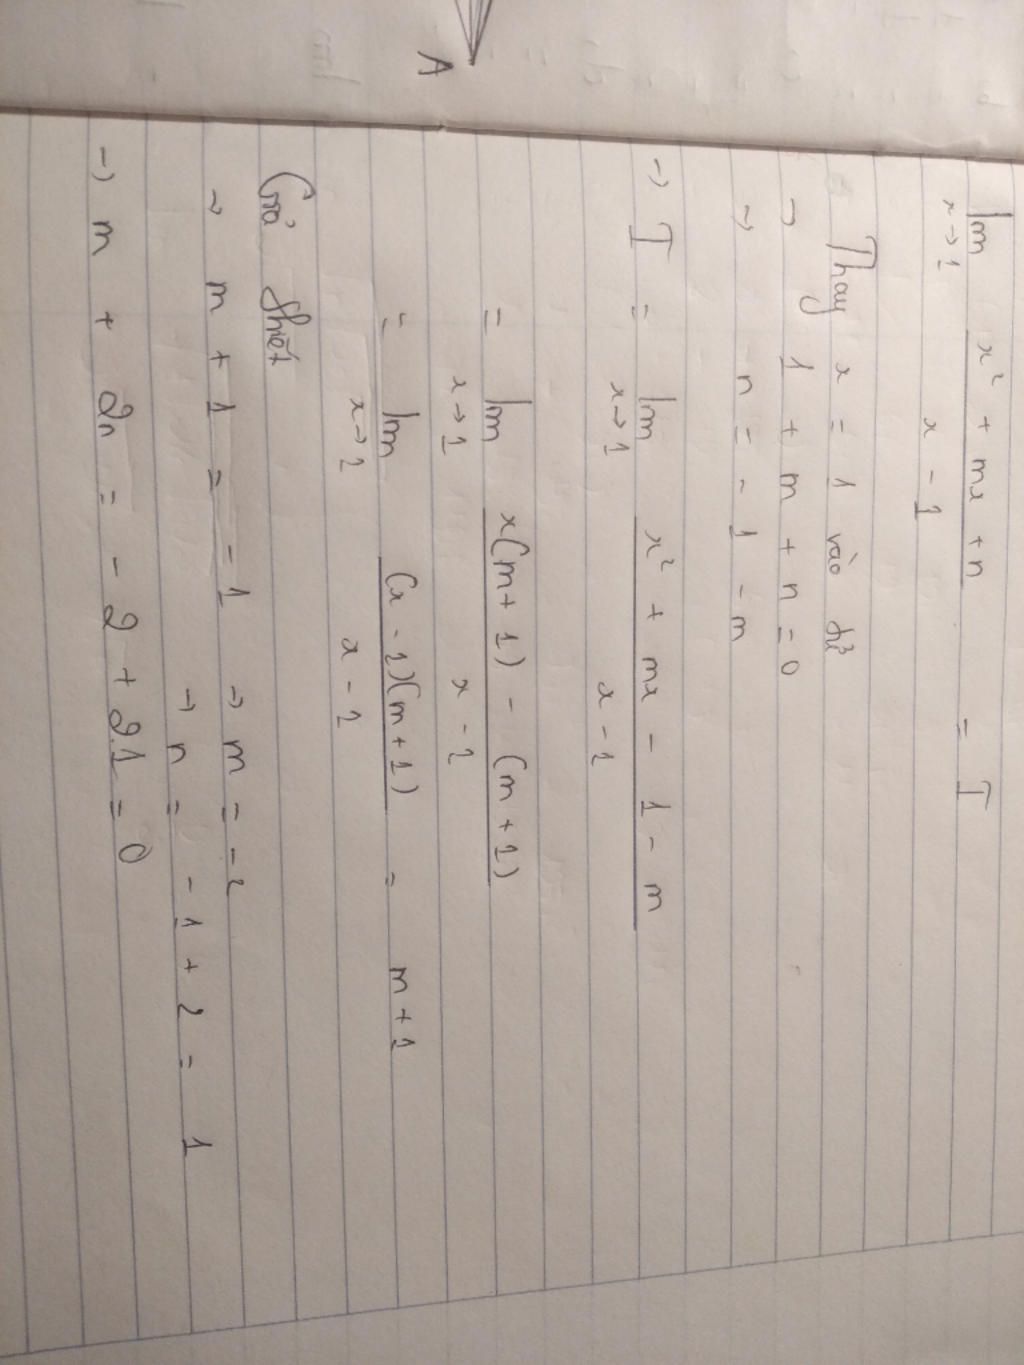 A
lim x² + mx + n = I
x→1 x - 1
Thay x = 1 vào
→ 1 + m + n = 0
→ n = - 1 - m
→ I = lim x² + mx - 1 - m
x→1 x - 1
= lim x(m+1) - (m+1)
x→1 x - 1
= lim (x - 1)(m+1) = m+1
x→1 x - 1
Giả thiết
→ m + 1 = - 1 → m = - 2
→ n = - 1 + 2 = 1
→ m + 2n = - 2 + 2.1 = 0